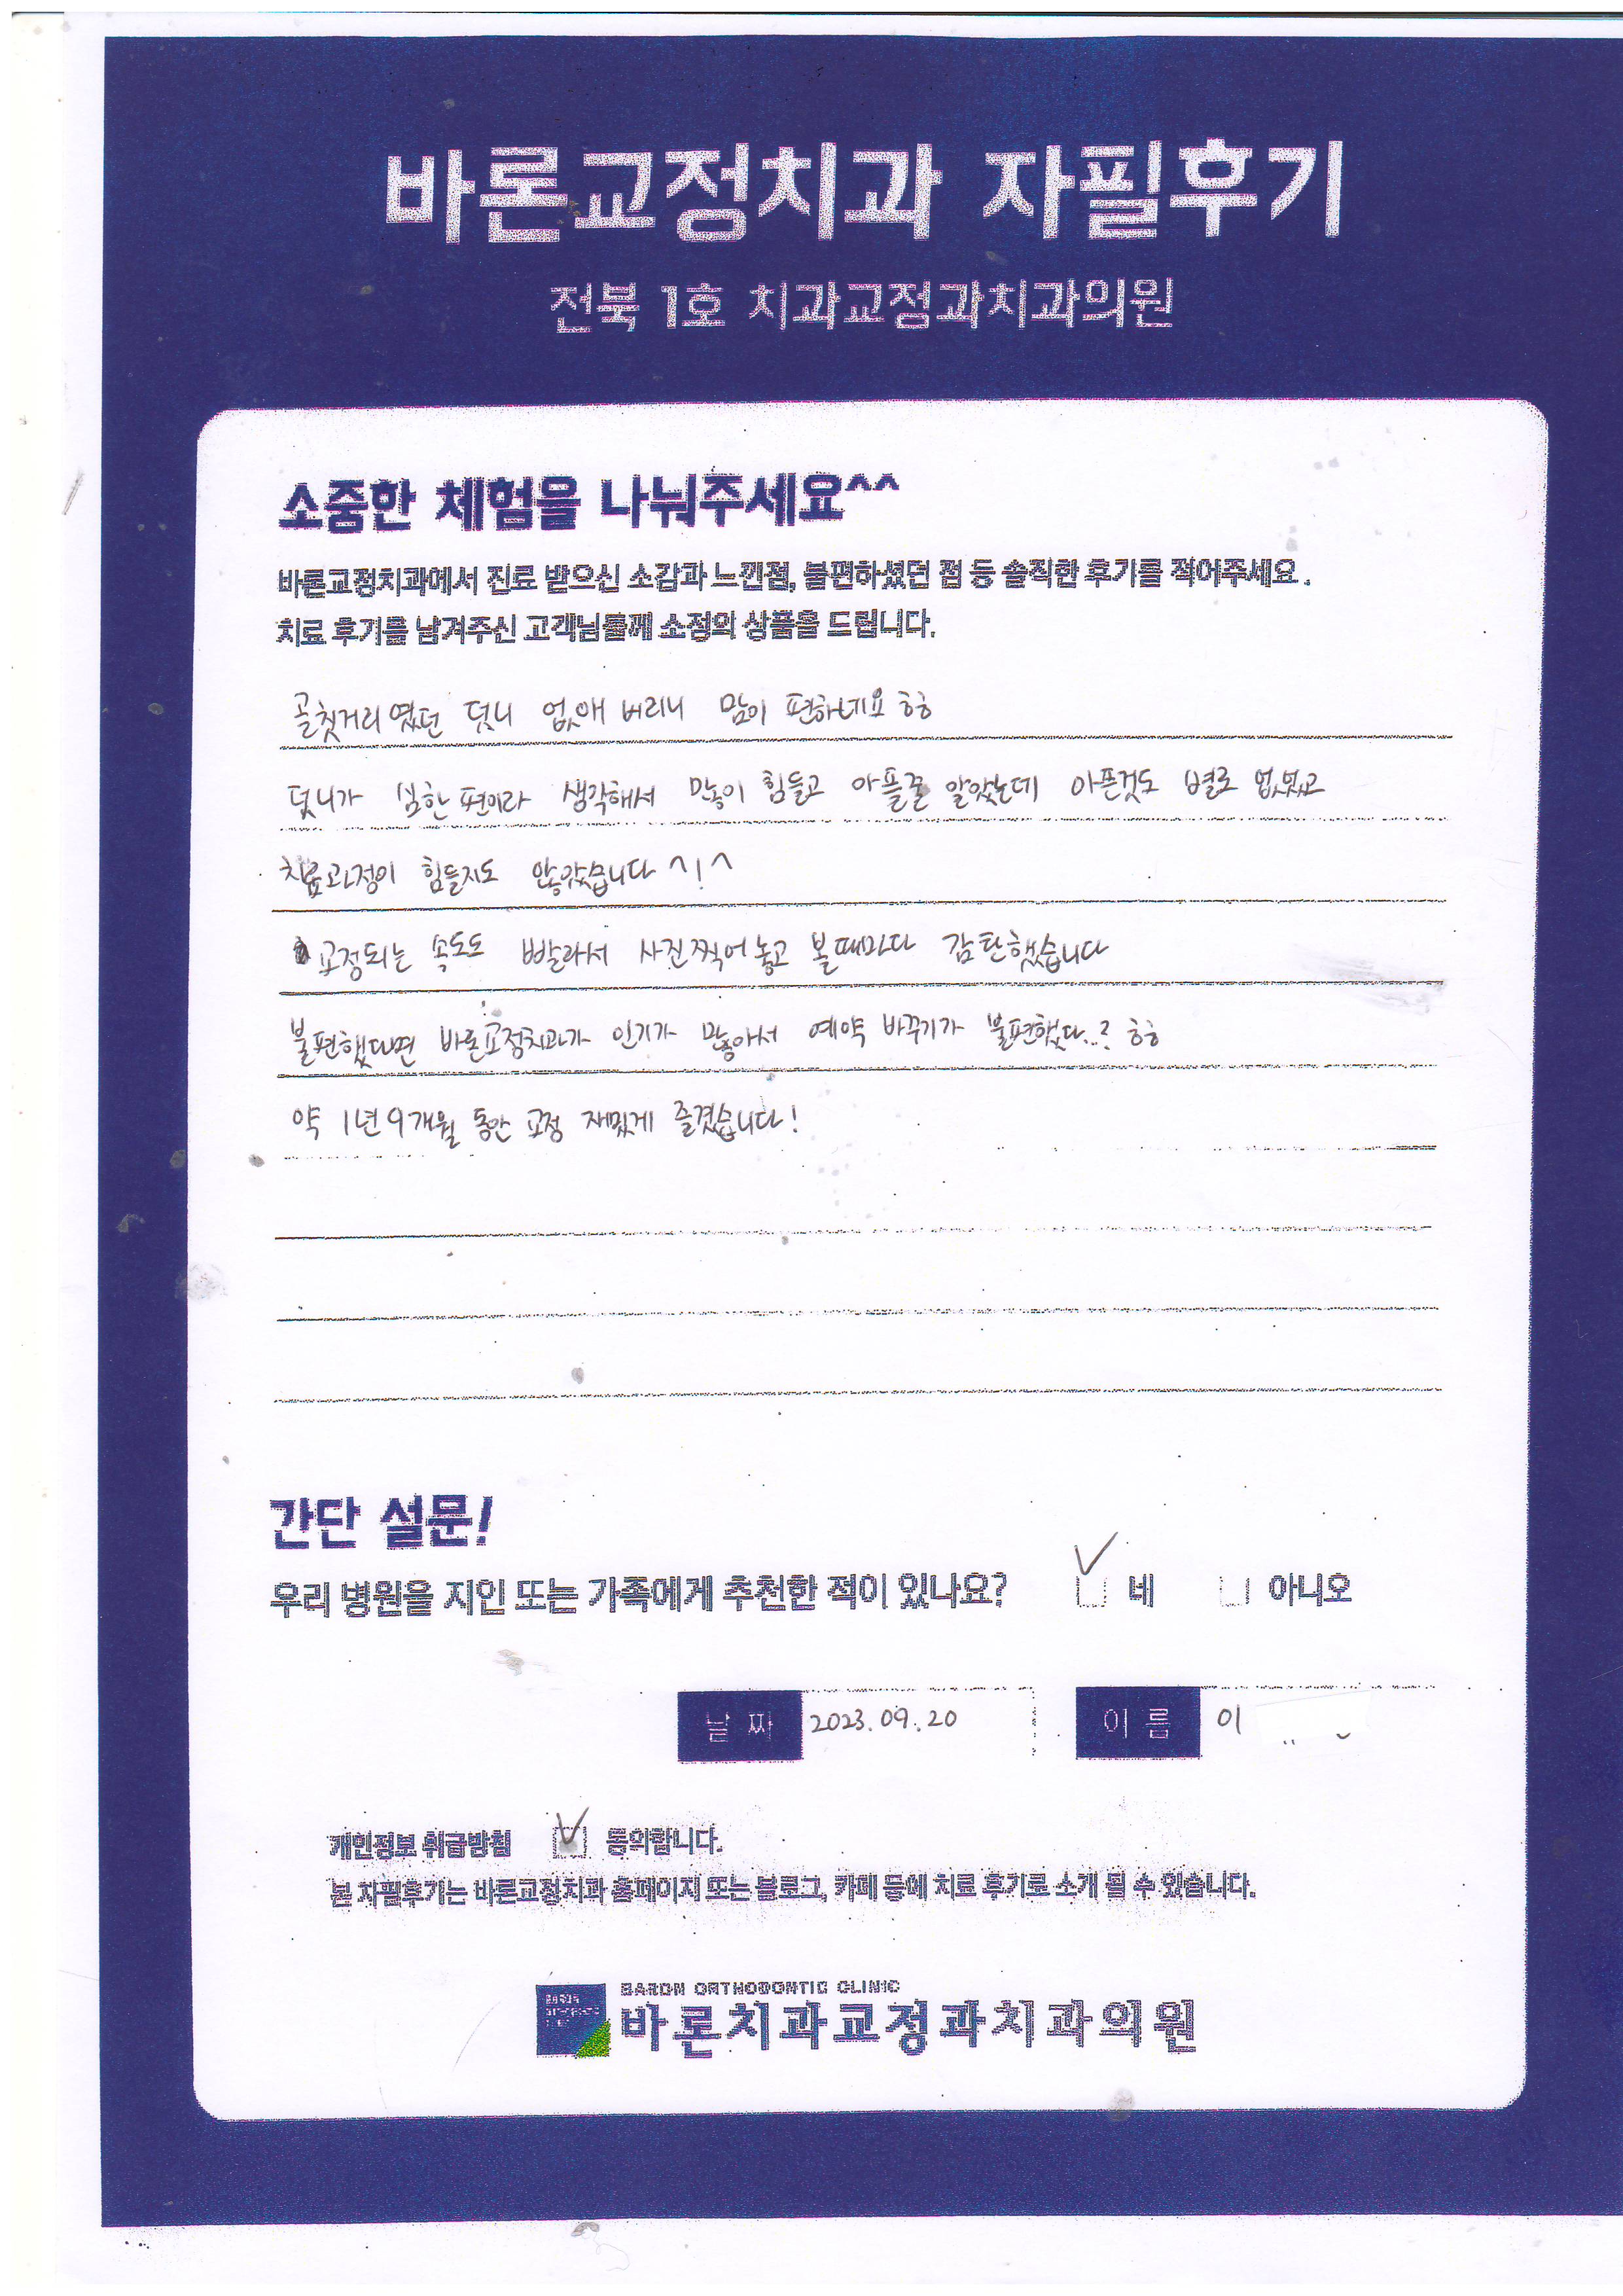 바론교정치과 자필후기
전북 1호 치과교정과치과의원
소중한 체험을 나눠주세요^^
바론교정치과에서 진료 받으신 소감과 느낀점, 불편하셨던 점 등 솔직한 후기를 적어주세요.
치료 후기를 남겨주신 고객님들께 소정의 상품을 드립니다.
골칫거리였던 덧니 없애 버리니 맘이 편하네요 ㅎㅎ
덧니가 심한 편이라 생각해서 많이 힘들고 아플줄 알았는데 아픈것도 별로 없었고
치료과정이 힘들지도 않았습니다 ^!^
교정되는 속도도 빨라서 사진찍어놓고 볼때마다 감탄했습니다
불편했다면 바론교정치과가 인기가 많아서 예약 바꾸기가 불편했다..? ㅎㅎ
약 1년 9개월 동안 교정 재밌게 즐겼습니다!
간단 설문!
우리 병원을 지인 또는 가족에게 추천한 적이 있나요? ✓ 네 아니오
날짜 2023.09.20 이름 이
개인정보 취급방침 ✓ 동의합니다.
본 자필후기는 바론교정치과 홈페이지 또는 블로그, 카페 등에 치료 후기로 소개 될 수 있습니다.
BARON ORTHODONTIC CLINIC
바론치과교정과치과의원